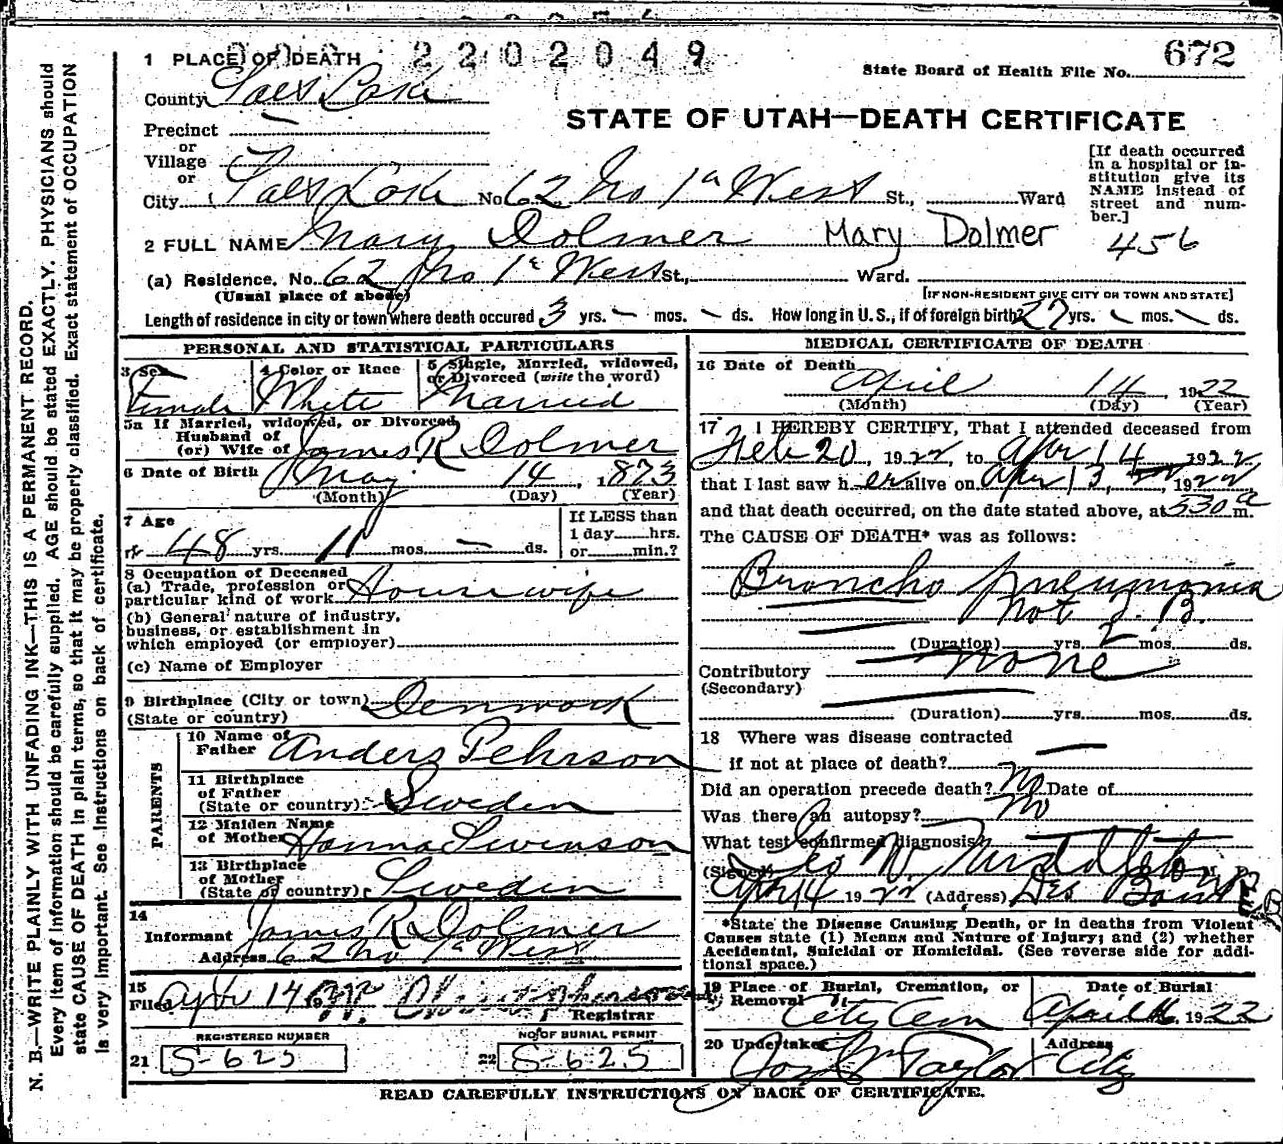 2202049
672
1 PLACE OF DEATH
State Board of Health File No.
County Salt Lake
STATE OF UTAH—DEATH CERTIFICATE
Precinct
or
Village
or
City Salt Lake No. 62 No 1st West St., Ward
[If death occurred
in a hospital or in-
stitution give its
NAME instead of
street and num-
ber.]
456
2 FULL NAME Mary Dolmer Mary Dolmer
(a) Residence. No. 62 No 1st West St., Ward.
(Usual place of abode) [IF NON-RESIDENT GIVE CITY OR TOWN AND STATE]
Length of residence in city or town where death occured 3 yrs. — mos. — ds. How long in U. S., if of foreign birth? 27 yrs. — mos. — ds.
PERSONAL AND STATISTICAL PARTICULARS
3 Sex
Female
4 Color or Race
White
5 Single, Married, widowed,
or Divorced (write the word)
Married
5a If Married, widowed, or Divorced
Husband of
(or) Wife of James R Dolmer
6 Date of Birth May 14, 1873
(Month) (Day) (Year)
7 Age
48 yrs. 11 mos. — ds.
If LESS than
1 day hrs.
or min.?
8 Occupation of Deceased
(a) Trade, profession or
particular kind of work Housewife
(b) General nature of industry,
business, or establishment in
which employed (or employer)
(c) Name of Employer
9 Birthplace (City or town) Denmark
(State or country)
PARENTS
10 Name of
Father Anders Pehrson
11 Birthplace
of Father
(State or country) Sweden
12 Maiden Name
of Mother Hanna Swenson
13 Birthplace
of Mother
(State or country) Sweden
14
Informant James R. Dolmer
Address 62 No 1st West
15
Filed Apr 14
Registrar
REGISTERED NUMBER
21 S-625
NO OF BURIAL PERMIT
22 S-625
MEDICAL CERTIFICATE OF DEATH
16 Date of Death
April 14, 1922
(Month) (Day) (Year)
17 I HEREBY CERTIFY, That I attended deceased from
Feb 20, 1922, to Apr 14 1922
that I last saw her alive on Apr 13, 1922
and that death occurred, on the date stated above, at 530 a m.
The CAUSE OF DEATH* was as follows:
Broncho pneumonia
Not T. B.
(Duration) yrs. 2 mos. ds.
Contributory none
(Secondary)
(Duration) yrs. mos. ds.
18 Where was disease contracted
if not at place of death? —
Did an operation precede death? No Date of
Was there an autopsy? No
What test confirmed diagnosis?
(Signed) Geo W. Middleton
Apr 14 1922 (Address) Des
*State the Disease Causing Death, or in deaths from Violent
Causes state (1) Means and Nature of Injury; and (2) whether
Accidental, Suicidal or Homicidal. (See reverse side for addi-
tional space.)
19 Place of Burial, Cremation, or
Removal City Cem
Date of Burial
April 16, 1922
20 Undertaker
Jos Wm Taylor
Address
City
READ CAREFULLY INSTRUCTIONS ON BACK OF CERTIFICATE.
N. B.—WRITE PLAINLY WITH UNFADING INK—THIS IS A PERMANENT RECORD.
Every item of information should be carefully supplied. AGE should be stated EXACTLY. PHYSICIANS should
state CAUSE OF DEATH in plain terms, so that it may be properly classified. Exact statement of OCCUPATION
is very important. See instructions on back of certificate.